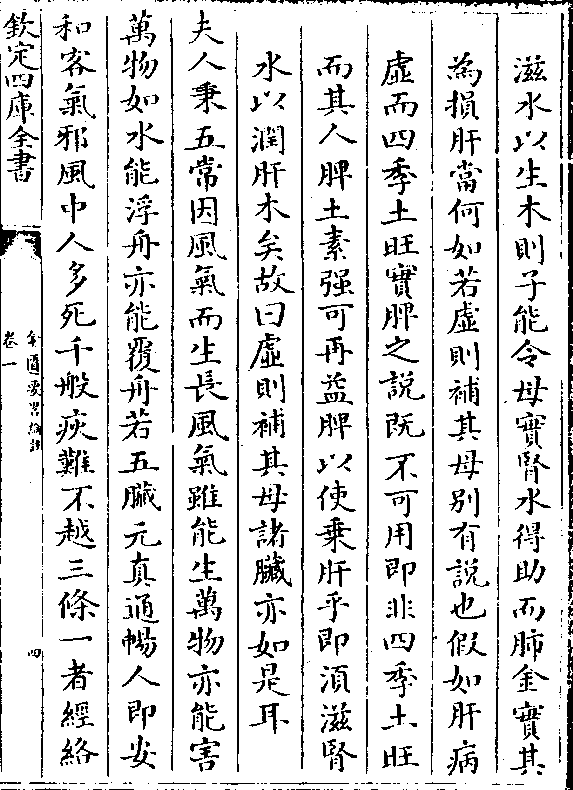 滋水以生木則子能令母實腎水得助而肺金實其
為損肝當何如若虛則補其母別有說也假如肝病
虛而四季土旺實脾之說既不可用即非四季土旺
而其人脾土素强可再益脾以使乗肝乎即湏滋腎
水以潤肝木矣故曰虛則補其母諸臟亦如是耳
夫人秉五常因風氣而生長風氣雖能生萬物亦能害
萬物如水能浮舟亦能覆舟若五臟元真通暢人即安
和客氣邪風中人多死千般疢難不越三條一者經絡
欽定四庫全書
金匱要畧論註
卷一
四